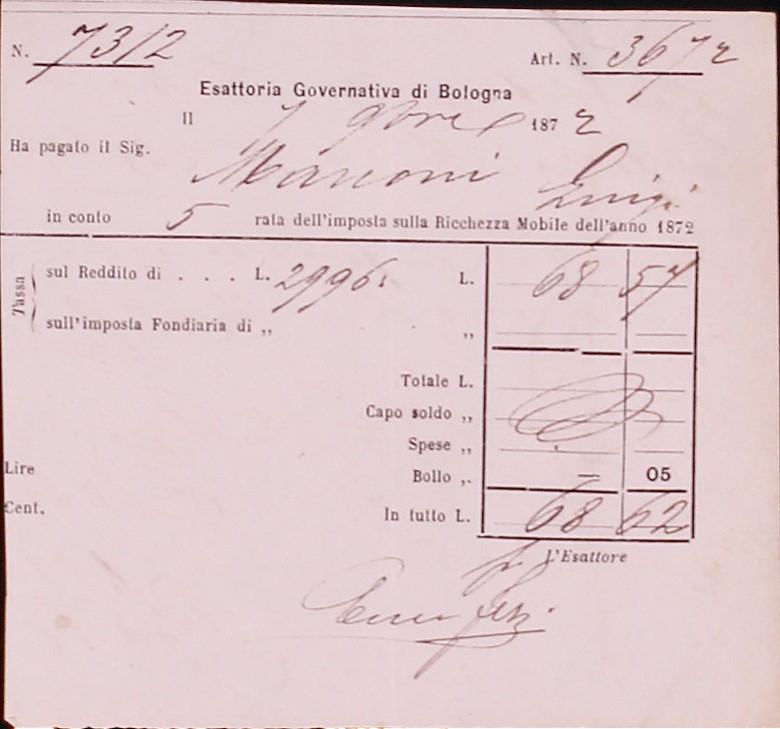 N. 7312 Art. N. 3672
Esattoria Governativa di Bologna
Il 7 1872
Ha pagato il Sig. Marconi Luigi
in conto 5 rata dell'imposta sulla Ricchezza Mobile dell'anno 1872
Tassa
sul Reddito di . . . L. 2996. L. 68 57
sull'imposta Fondiaria di „ „
Totale L.
Capo soldo „
Spese „
Lire
Bollo „ — 05
Cent.
In tutto L. 68 62
L'Esattore